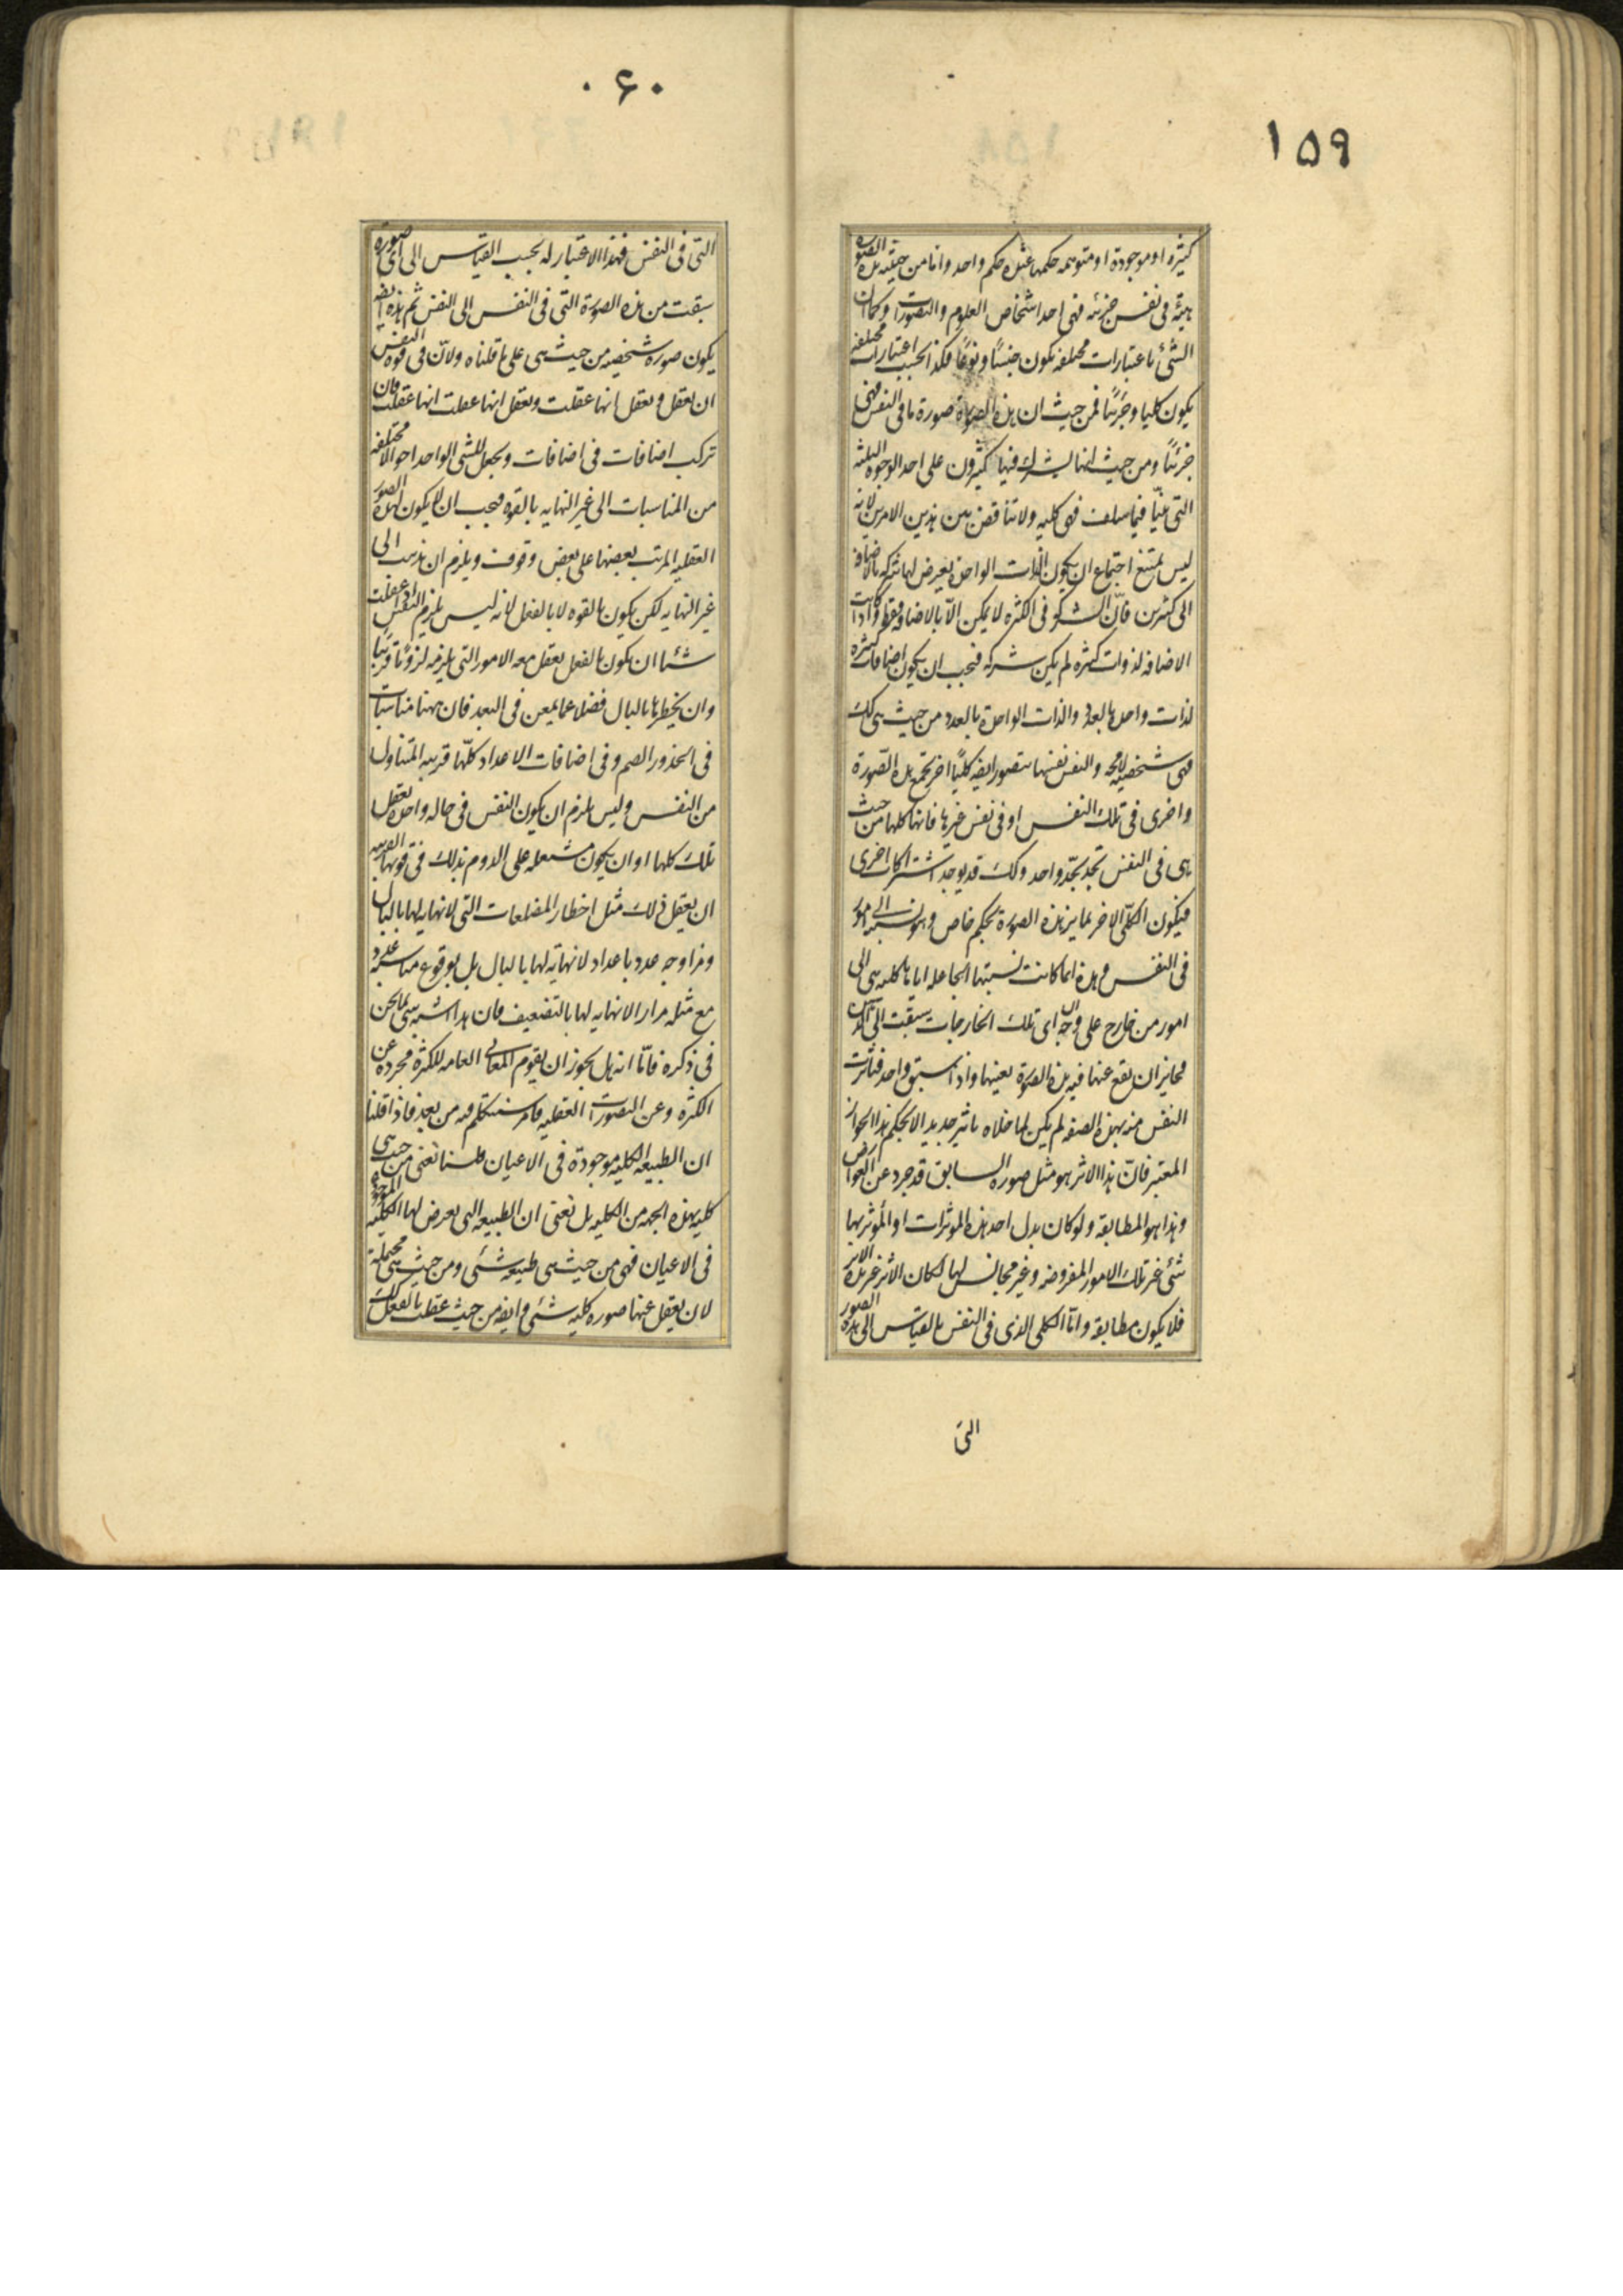 ١٥٩
كثيرة او موجودة او متوهمه حكمها عنده حكم واحد واما من حيث هذه الصورة
هيئة فى نفس جزئيه فهى احد اشخاص العلوم والتصورات وكما ان
الشئ باعتبارات مختلفه يكون جنسًا ونوعًا فكذا بحسب اعتبارات مختلفه
يكون كليا وجزئيًا فمن حيث ان هذه الصورة صورة ما فى النفس فهى
جزئيًا ومن حيث انها يشترك فيها كثيرون على احد الوجوه الثلثه
التى بيّنا فيما سلف فهى كليه ولا تناقض بين هذين الامرين لانه
ليس بممتنع اجتماع ان يكون الذات الواحدة يعرض لها شركه بالاضافه
الى كثيرين فانّ الشركه فى الكثره لا يمكن الّا بالاضافه فقط واذا كانت
الاضافه لذوات كثيره لم يكن شركه فيجب ان يكون اضافات كثيره
لذات واحده بالعدد والذات الواحدة بالعدد من حيث هى كك
فهى شخصيه لا محه والنفس نفسها تتصور ايضه كليًا اخر يجمع هذه الصورة
واخرى فى تلك النفس او فى نفس غيرها فانها كلها من حيث
هى فى النفس تحدّ بحدّ واحد وكك قد يوجد اشتراكات اخرى
فيكون الكلّى الاخر يمايز هذه الصورة بحكم خاص وهو نسبته الى امور
فى النفس وهذه انما كانت نسبتها الجاعله اياها كليه هى الى
امور من خارج على وجه ان اى تلك الخارجات سبقت الى الذهن
فجايز ان يقع عنها فيه هذه الصورة بعينها واذا سبق واحد فتاثرت
النفس منه بهذه الصفه لم يكن لما خلاه تاثير جديد الا بحكم هذا الجواز
المعتبر فانّ هذا الاثر هو مثل صوره السابق قد جرد عن العوارض
وهذا هو المطابقه ولو كان بدل احد هذه الموثرات او المؤثر بها
شئ غير تلك الامور المفروضه وغير مجانس لها لكان الاثر غير هذا الاثر
فلا يكون مطابقه وامّا الكلى الذى فى النفس بالقياس الى هذه الصور
التى
٠۶٠
التى فى النفس فهذا الاعتبار له بحسب القياس الى اى صورة
سبقت من هذه الصورة التى فى النفس الى النفس ثم هذه ايضه
يكون صوره شخصيه من حيث هى على ما قلناه ولانّ فى قوه النفس
ان يعقل ويعقل انها عقلت ويعقل انها عقلت انها عقلت وان
تركب اضافات فى اضافات ويجعل للشى الواحد احوالا مختلفه
من المناسبات الى غير النهايه بالقوه فيجب ان لا يكون لهذه الصور
العقليه المرتب بعضها على بعض وقوف ويلزم ان يذهب الى
غير النهايه لكن يكون بالقوه لا بالفعل لانه ليس يلزم النفس اذا عقلت
شيئا ان يكون بالفعل يعقل معه الامور التى يلزمه لزومًا قريبًا
وان يخطرها بالبال فضلا عما يمعن فى البعد فان ههنا مناسبات
فى الجذور الصم وفى اضافات الاعداد كلّها قريبه المتناول
من النفس وليس يلزم ان يكون النفس فى حاله واحده يعقل
تلك كلها او ان يكون مشتعله على الدوم بذلك فى قوتها القريبه
ان يعقل ذلك مثل اخطار المضلعات التى لا نهايه لها بالبال
ومزاوجه عدد باعداد لا نهاية لها بالبال بل بوقوع مناسبه عدد
مع مثله مرارا لا نهايه لها بالتضعيف فان هذا اشبه شى بما نحن
فى ذكره فامّا انه هل يجوز ان يقوم المعانى العامه للكثرة مجرده عن
الكثره وعن التصورات العقليه فامر سنتكلم فيه من بعد فاذا قلنا
ان الطبيعه الكليه موجودة فى الاعيان فلسنا نعنى من حيث هى
كليه بهذه الجهه من الكليه بل نعنى ان الطبيعه التى يعرض لها الكليه الموجودة
فى الاعيان فهى من حيث هى طبيعه شئى ومن حيث هى محتملة
لان يعقل عنها صوره كليه شئى وايضه من حيث عقلت بالفعل كك